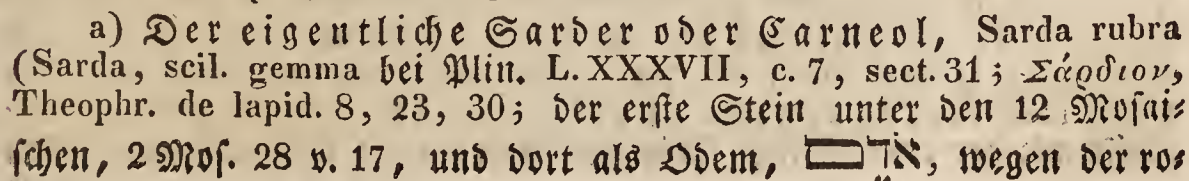 a) Der eigentliche Sarder oder Carneol, Sarda rubra
(Sarda, scil. gemma bei Plin. L. XXXVII, c. 7, sect. 31; Σάρδιον,
Theophr. de lapid. 8, 23, 30; der erste Stein unter den 12 Mosai⸗
schen, 2 Mos. 28 v. 17, und dort als Odem, אדם, wegen der ro⸗